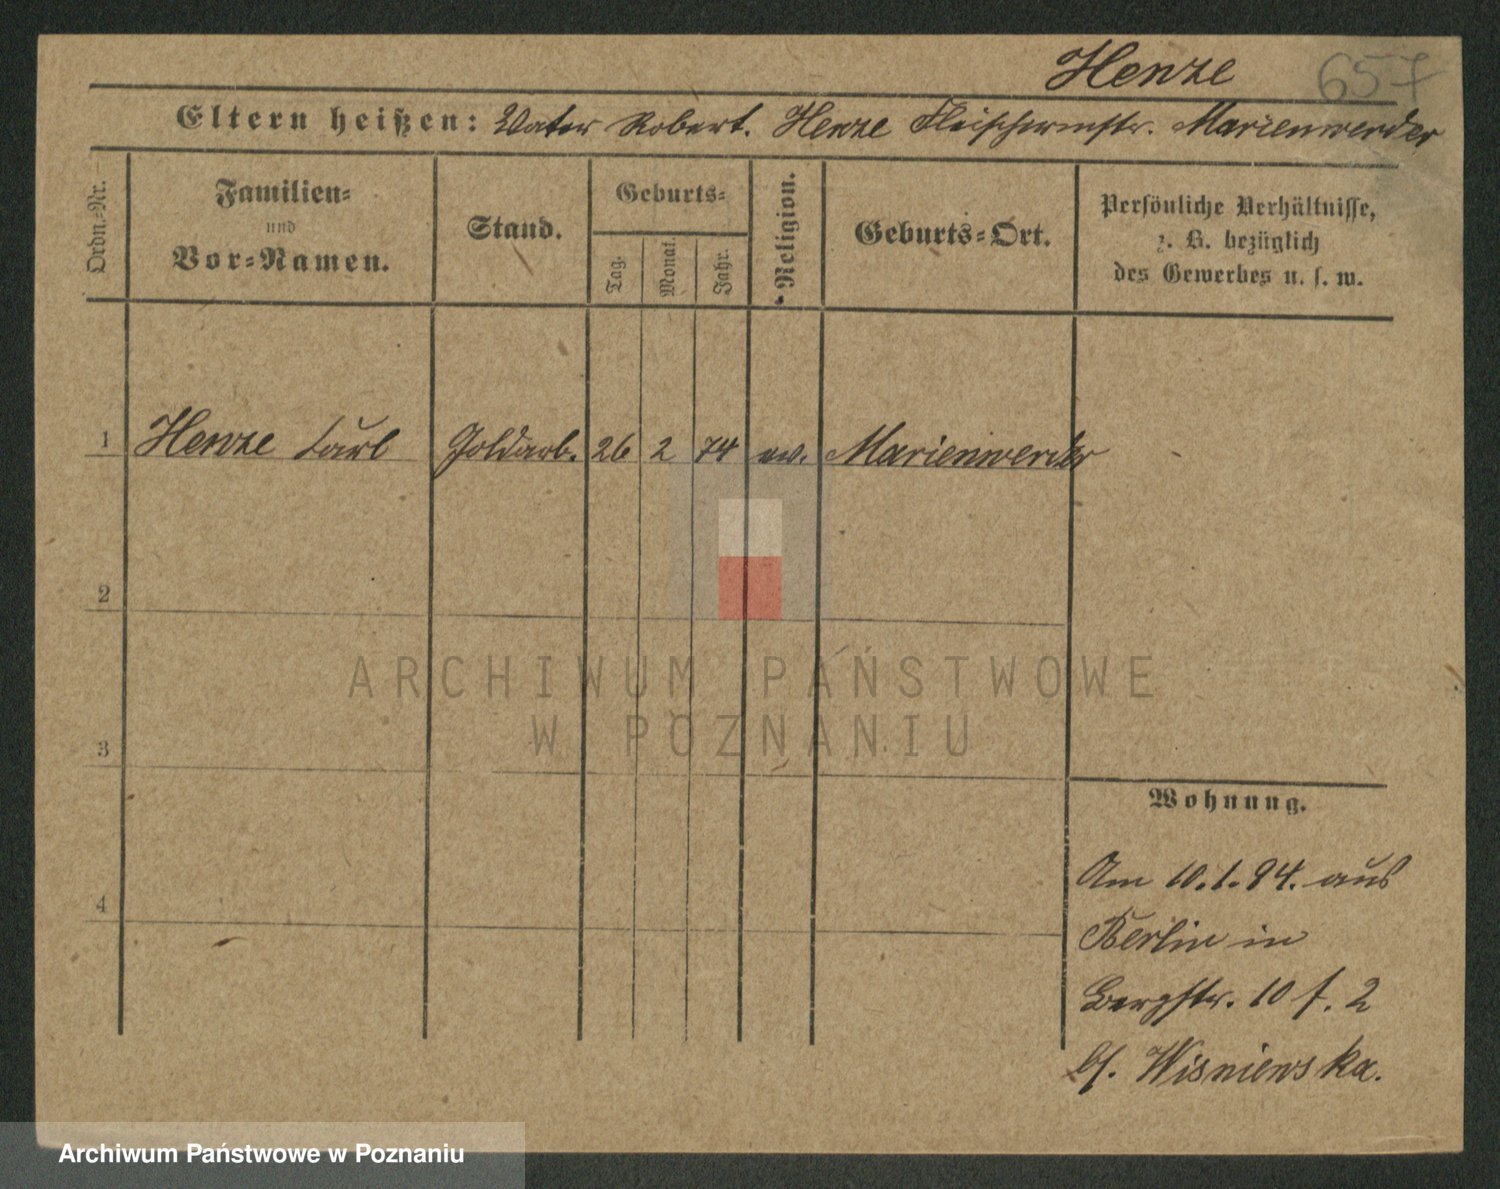 Henze 657
Eltern heißen: Vater Robert. Henze Fleischermstr. Marienwerder
Ordn.-Nr.
Familien-
und
Vor-Namen.
Stand.
Geburts-
Tag.
Monat.
Jahr.
Religion.
Geburts-Ort.
Persönliche Verhältnisse,
z. B. bezüglich
des Gewerbes u. s. w.
1 Henze Carl Goldarb. 26 2 74 ev. Marienwerder
2
ARCHIWUM PAŃSTWOWE
W POZNANIU
3
Wohnung.
4
Am 10.1.94. aus
Berlin in
Bergstr. 10 f. 2
bf. Wisniewska.
Archiwum Państwowe w Poznaniu